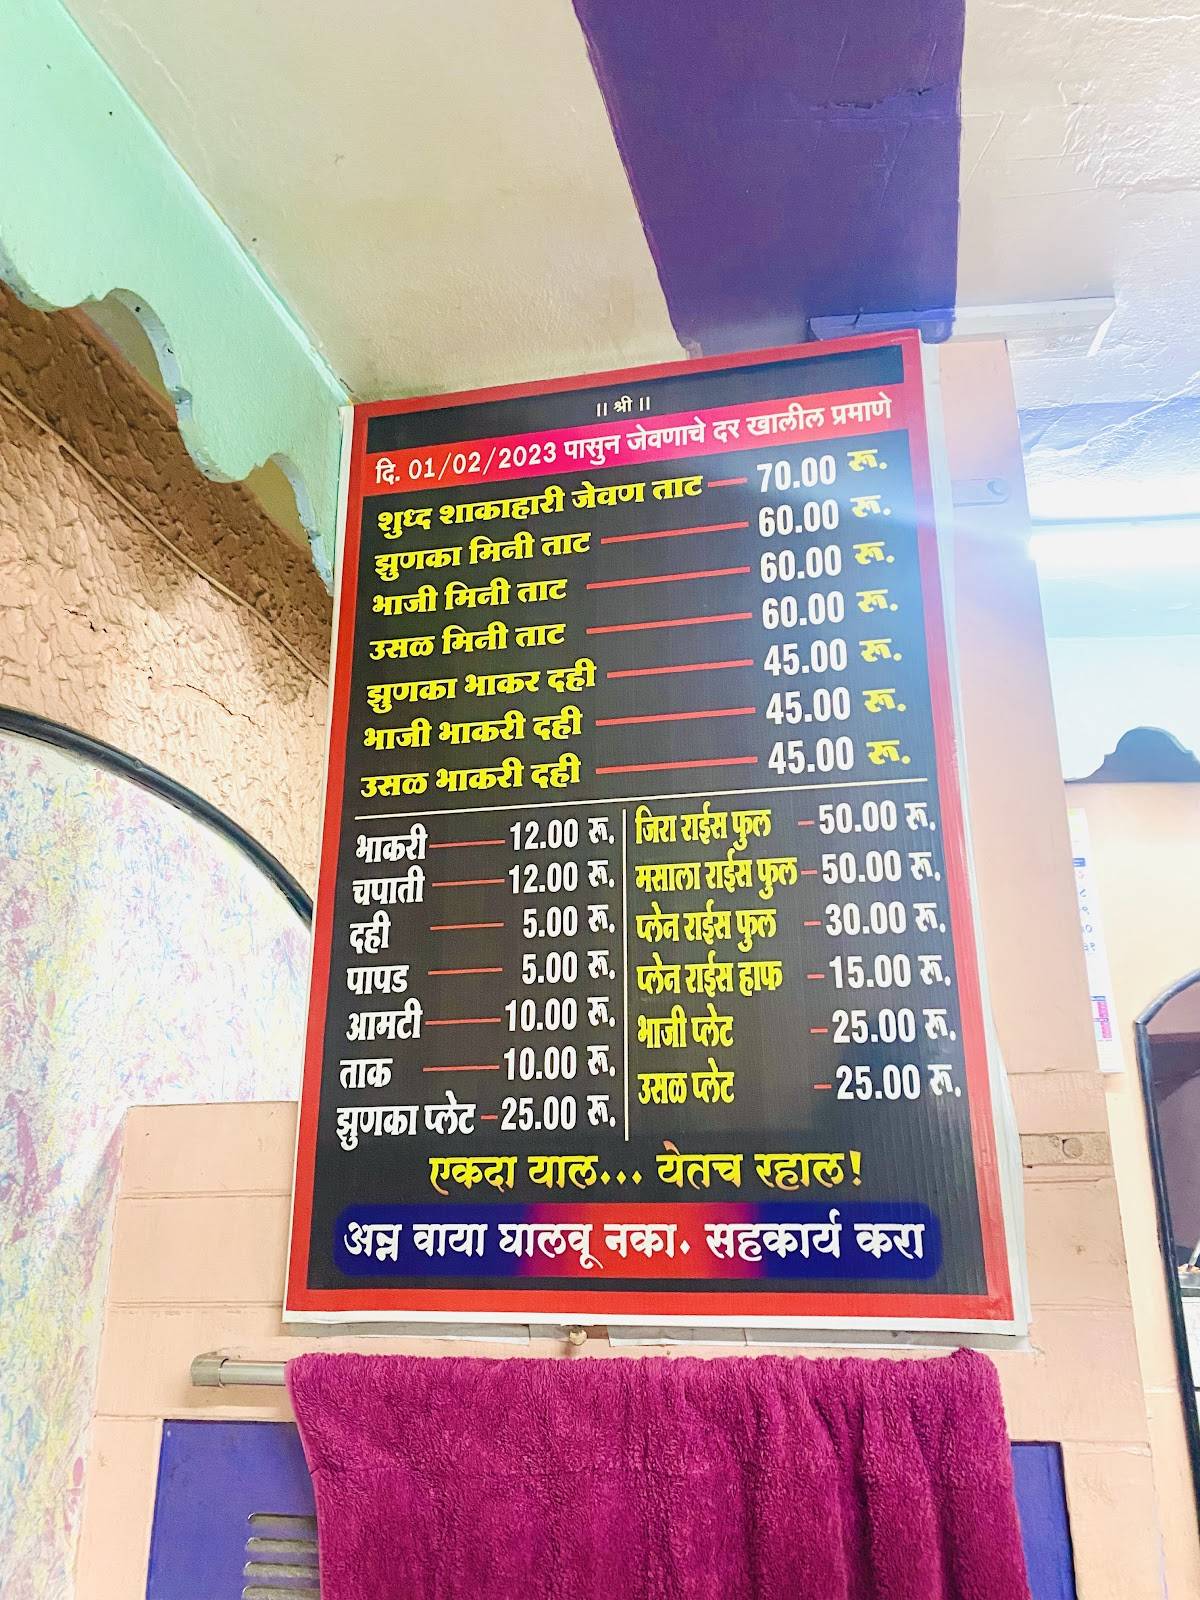 || श्री ||
दि. 01/02/2023 पासुन जेवणाचे दर खालील प्रमाणे
शुध्द शाकाहारी जेवण ताट — 70.00 रू.
झुणका मिनी ताट — 60.00 रू.
भाजी मिनी ताट — 60.00 रू.
उसळ मिनी ताट — 60.00 रू.
झुणका भाकर दही — 45.00 रू.
भाजी भाकरी दही — 45.00 रू.
उसळ भाकरी दही — 45.00 रू.
भाकरी — 12.00 रू.
चपाती — 12.00 रू.
दही — 5.00 रू.
पापड — 5.00 रू.
आमटी — 10.00 रू.
ताक — 10.00 रू.
झुणका प्लेट – 25.00 रू.
जिरा राईस फुल – 50.00 रू.
मसाला राईस फुल – 50.00 रू.
प्लेन राईस फुल – 30.00 रू.
प्लेन राईस हाफ – 15.00 रू.
भाजी प्लेट – 25.00 रू.
उसळ प्लेट – 25.00 रू.
एकदा याल... येतच रहाल!
अन्न वाया घालवू नका. सहकार्य करा